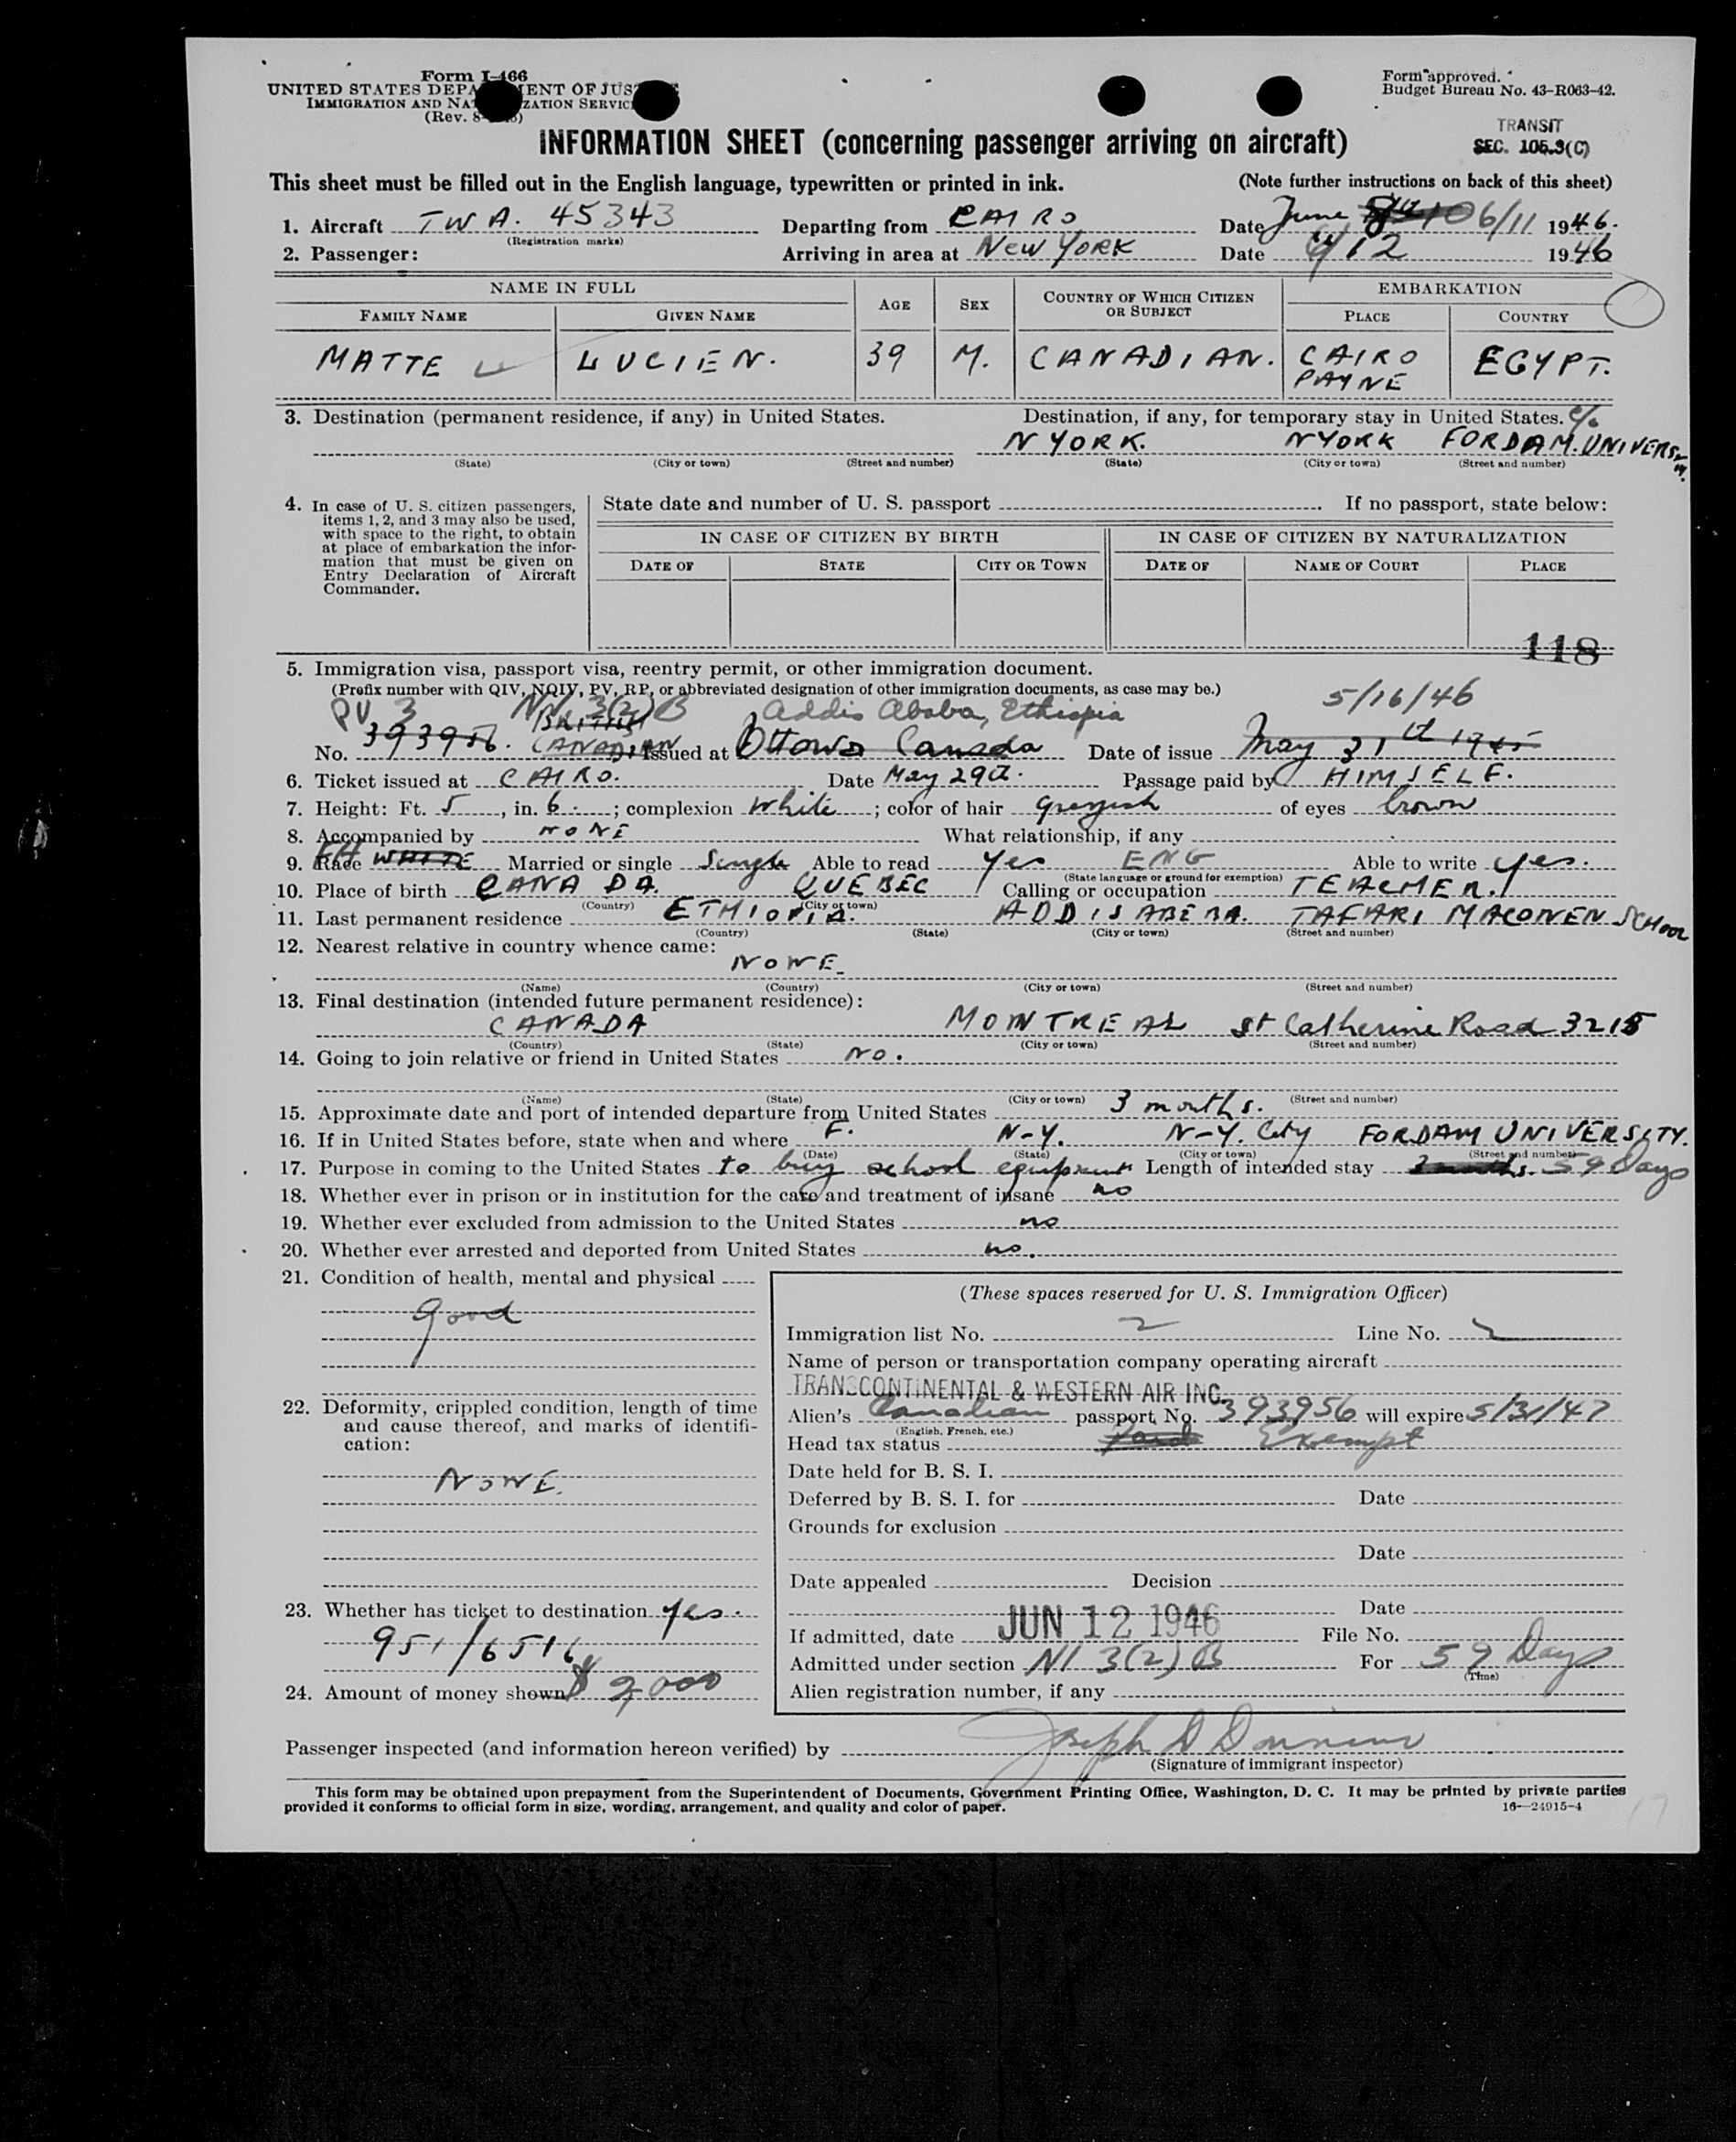 Form I-466
UNITED STATES DEPA ENT OF JUS
IMMIGRATION AND NA ZATION SERVIC
(Rev. 8- )
Form approved.
Budget Bureau No. 43-R063-42.
TRANSIT
SEC. 105.3(C)
INFORMATION SHEET (concerning passenger arriving on aircraft)
This sheet must be filled out in the English language, typewritten or printed in ink. (Note further instructions on back of this sheet)
1. Aircraft TWA. 45343 Departing from CAIRO Date June 10 6/11 1946.
(Registration marks)
2. Passenger: Arriving in area at NEW YORK Date 6/12 1946
NAME IN FULL AGE SEX COUNTRY OF WHICH CITIZEN OR SUBJECT EMBARKATION
FAMILY NAME GIVEN NAME PLACE COUNTRY
MATTE LUCIEN. 39 M. CANADIAN. CAIRO EGYPT.
PAYNE
3. Destination (permanent residence, if any) in United States. Destination, if any, for temporary stay in United States. c/o
N YORK. N YORK FORDAM. UNIVERSITY.
(State) (City or town) (Street and number) (State) (City or town) (Street and number)
4. In case of U. S. citizen passengers,
items 1, 2, and 3 may also be used,
with space to the right, to obtain
at place of embarkation the infor-
mation that must be given on
Entry Declaration of Aircraft
Commander.
State date and number of U. S. passport . If no passport, state below:
IN CASE OF CITIZEN BY BIRTH IN CASE OF CITIZEN BY NATURALIZATION
DATE OF STATE CITY OR TOWN DATE OF NAME OF COURT PLACE
118
5. Immigration visa, passport visa, reentry permit, or other immigration document.
(Prefix number with QIV, NQIV, PV, RP, or abbreviated designation of other immigration documents, as case may be.)
PV 3 NI 3(2)B Addis Ababa, Ethiopia 5/16/46
BRITISH
No. 393956. CANADIAN Issued at Ottowa Canada Date of issue May 31st 1945
6. Ticket issued at CAIRO. Date May 29th. Passage paid by HIMSELF.
7. Height: Ft. 5, in. 6. ; complexion White ; color of hair greyish of eyes brown
8. Accompanied by NONE What relationship, if any
9. Race FH WHITE Married or single Single Able to read yes ENG Able to write yes.
(State language or ground for exemption)
10. Place of birth CANADA. QUEBEC Calling or occupation TEACHER.
(Country) (City or town)
11. Last permanent residence ETHIOPIA. ADDIS ABEBA. TAFARI MACONEN SCHOOL
(Country) (State) (City or town) (Street and number)
12. Nearest relative in country whence came:
NONE
(Name) (Country) (City or town) (Street and number)
13. Final destination (intended future permanent residence):
CANADA MONTREAL St Catherine Road 3215
(Country) (State) (City or town) (Street and number)
14. Going to join relative or friend in United States NO.
(Name) (State) (City or town) (Street and number)
15. Approximate date and port of intended departure from United States 3 months.
16. If in United States before, state when and where F. N-Y. N-Y. City FORDAM UNIVERSITY.
(Date) (State) (City or town) (Street and number)
17. Purpose in coming to the United States to buy school equipment Length of intended stay 3 months. 59 Days
18. Whether ever in prison or in institution for the care and treatment of insane no
19. Whether ever excluded from admission to the United States no
20. Whether ever arrested and deported from United States no.
21. Condition of health, mental and physical
good
22. Deformity, crippled condition, length of time
and cause thereof, and marks of identifi-
cation:
NONE.
23. Whether has ticket to destination yes.
951/6516
24. Amount of money shown $ 2,000
(These spaces reserved for U. S. Immigration Officer)
Immigration list No. 2 Line No. 2
Name of person or transportation company operating aircraft
TRANSCONTINENTAL & WESTERN AIR INC.
Alien's Canadian passport No. 393956 will expire 5/31/47
(English, French, etc.)
Head tax status Paid Exempt
Date held for B. S. I.
Deferred by B. S. I. for Date
Grounds for exclusion
Date
Date appealed Decision
Date
If admitted, date JUN 12 1946 File No.
Admitted under section NI 3(2) B For 59 Days
(Time)
Alien registration number, if any
Passenger inspected (and information hereon verified) by Joseph D
(Signature of immigrant inspector)
This form may be obtained upon prepayment from the Superintendent of Documents, Government Printing Office, Washington, D. C. It may be printed by private parties
provided it conforms to official form in size, wording, arrangement, and quality and color of paper. 16—24915-4
17